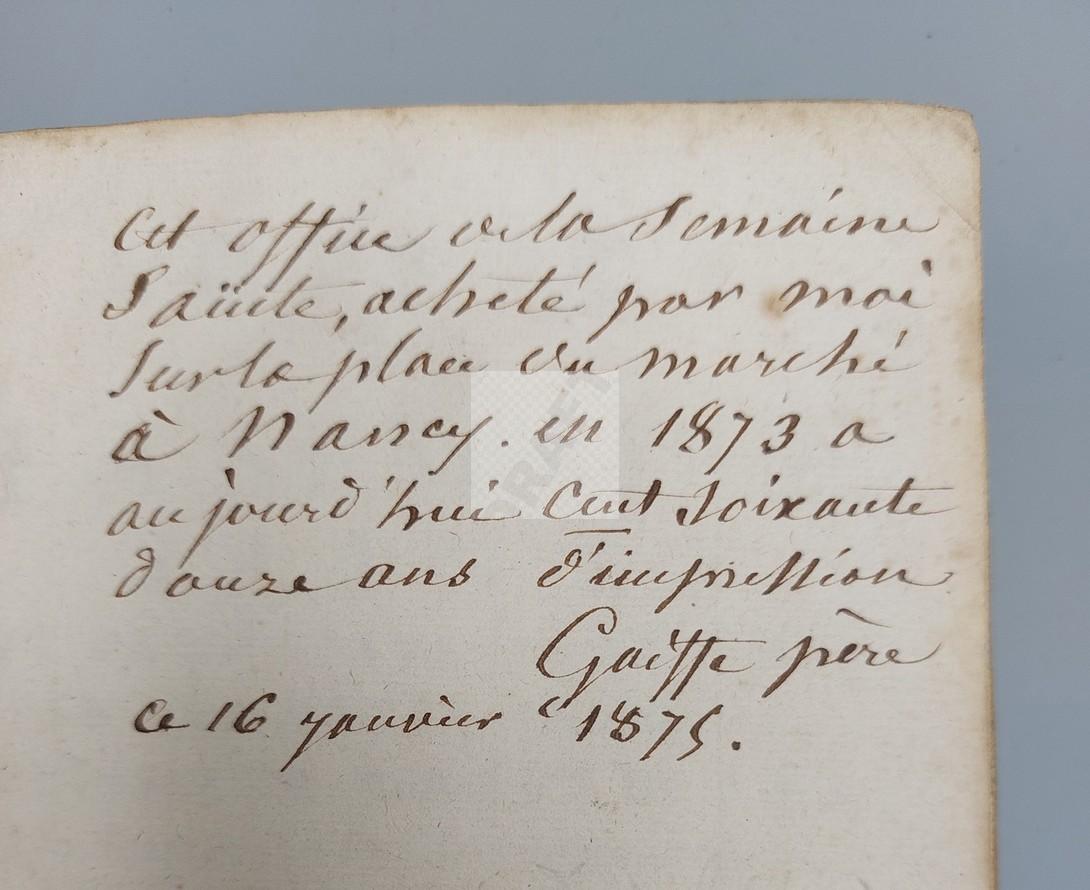 Cet office de la Semaine
Sainte, acheté par moi
sur la place du marché
à Nancy. en 1873 a
aujourd'hui cent soixante
douze ans d'impression
Gaiffe père
ce 16 janvier 1875.